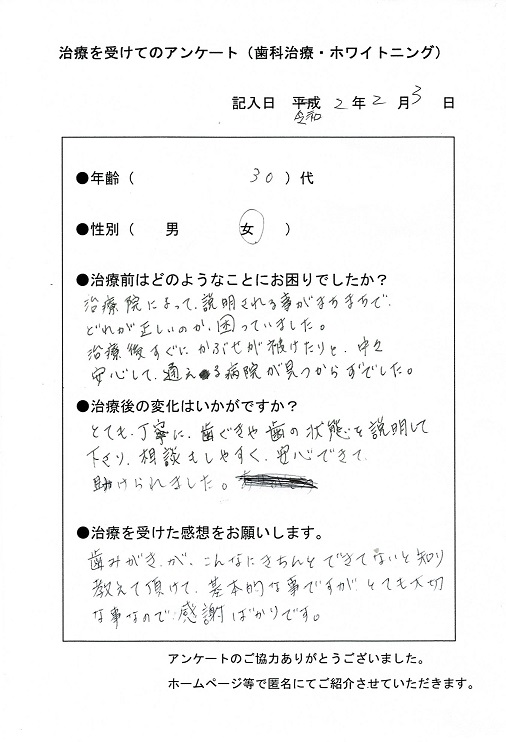 治療を受けてのアンケート（歯科治療・ホワイトニング）
記入日 平成 2年2月3日
令和
●年齢（ 30）代
●性別（ 男 女 ）
●治療前はどのようなことにお困りでしたか？
治療院によって、説明される事がまちまちで、
どれが正しいのか、困っていました。
治療後すぐにかぶせが被けたりと、中々
安心して、通える病院が見つからずでした。
●治療後の変化はいかがですか？
とても、丁寧に、歯ぐきや歯の状態を説明して
下さり、相談もしやすく、安心できて、
助けられました。
●治療を受けた感想をお願いします。
歯みがきが、こんなにきちんとできてないと知り
教えて頂けて、基本的な事ですが、とても大切
な事なので、感謝ばかりです。
アンケートのご協力ありがとうございました。
ホームページ等で匿名にてご紹介させていただきます。